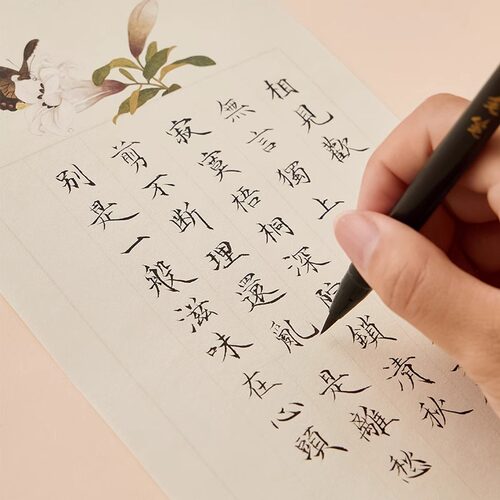 相見歡
無言獨上
寂寞梧桐深院鎖清秋
剪不斷理還亂是離愁
別是一般滋味在心頭